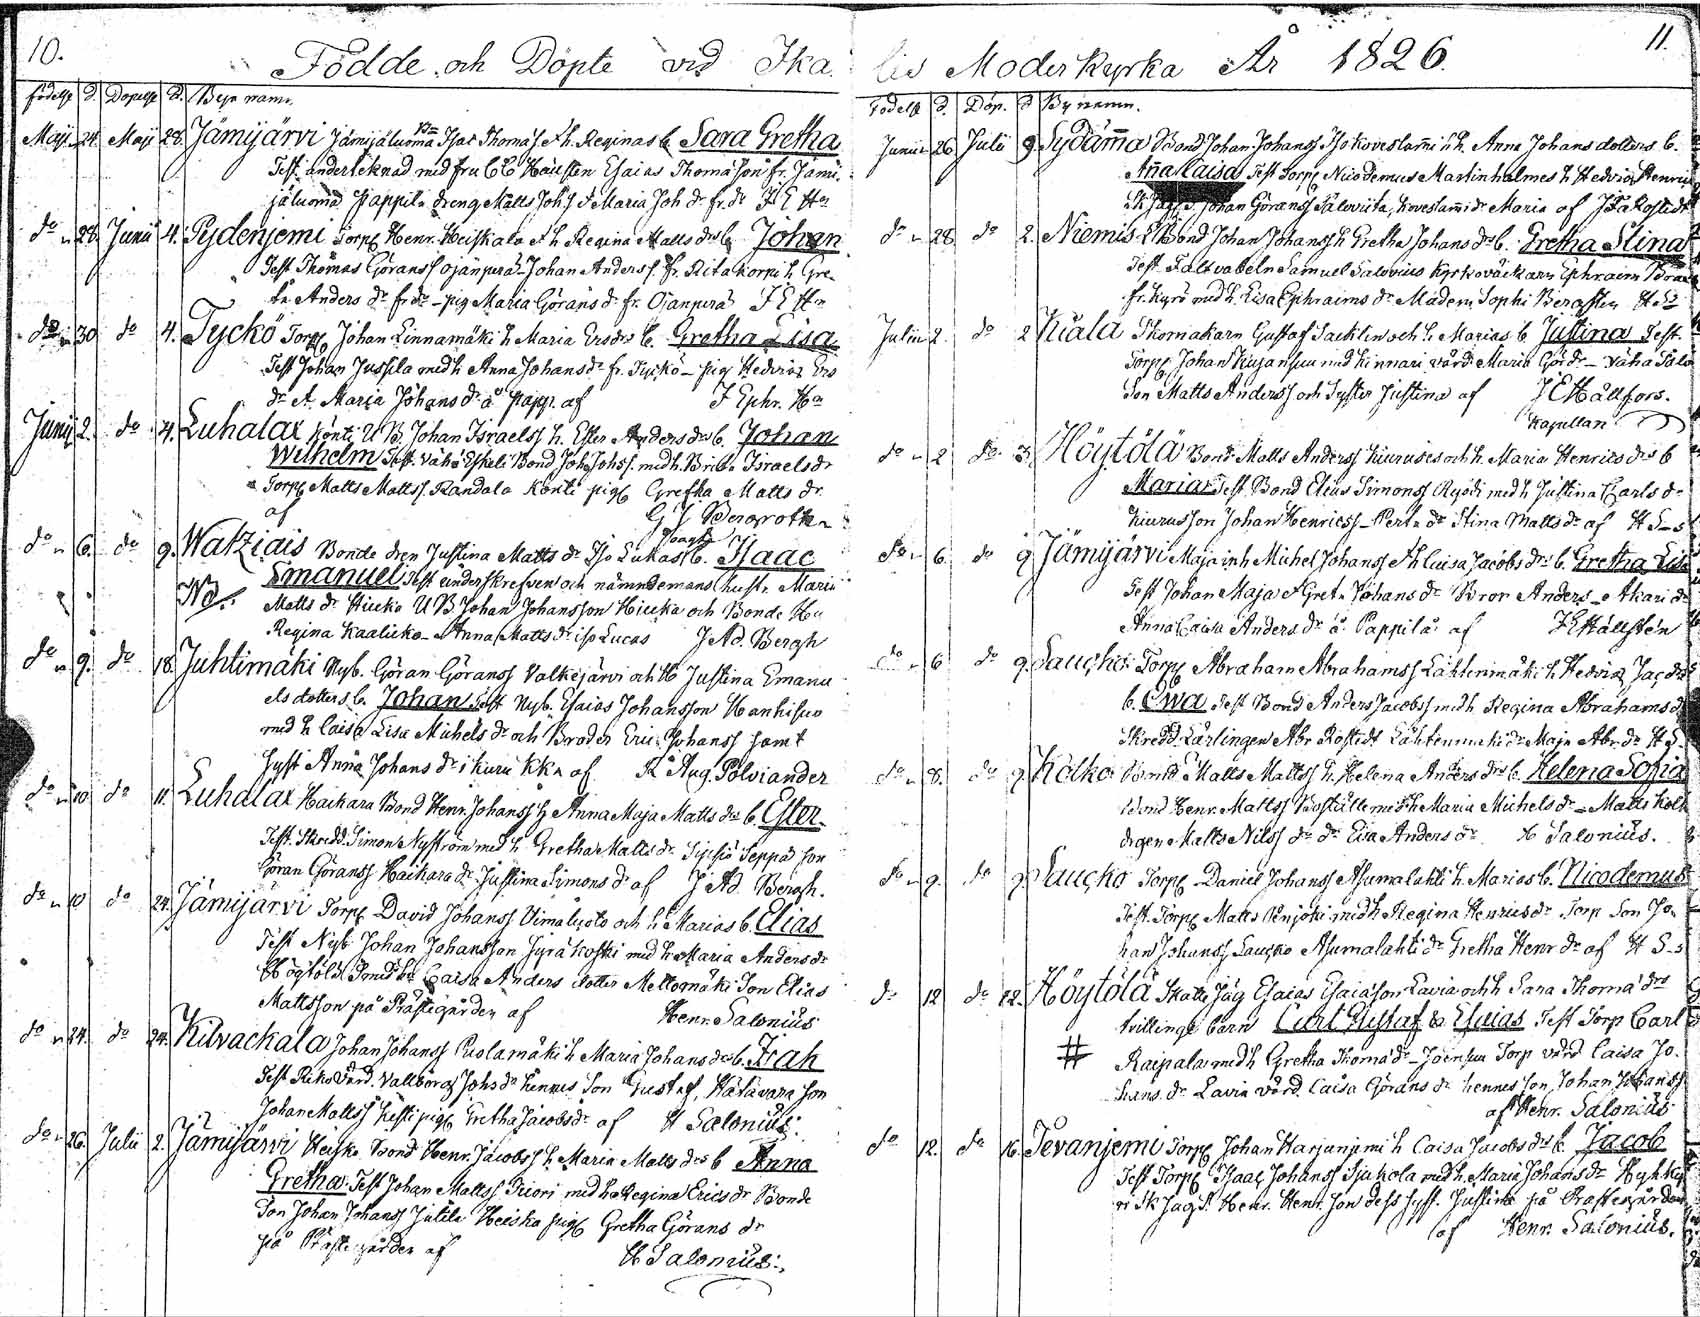 10.
Födde och Döpte vid Ika
födelse d. Döpelse d. Byn namn.
Maji 24. Maji 28. Jämijärvi Jämijäluoma Isac Thomas h. Reginas b. Sara Gretha
Test. underteknad med fru Esaias Thomasson fr. Jämi-
jäluoma Pappila dreng Matts Joh.s Maria Joh. dr fr. dr
do 28. Junii 4. Pydenjemi Torp. Henr. Heiskala h. Regina Matts drs b. Johan
Test Thomas Göranss Ojanperä Johan Anderss. fr. Ritakorpi h. Gre-
ta Anders dr fr. do pig Maria Görans dr fr. Ojanperä
do 30 do 4. Tyckö Torp. Johan Linnamäki h Maria Ersdrs b. Gretha Lisa
Test Johan Jussila med h Anna Johans dr fr. Tyckö pig Hedvig Ers
dr Maria Johans dr å papp. af J Ephr. Hn
Junij 2. do 4. Luhalax Könti U B. Johan Israelss h. Ester Anders drs b. Johan
Wilhelm Test. Bond Joh. Johss. med h. Brita Israels dr
Torp Matts Mattss Randala Könti pig Gretha Matts dr
af G J Bergroth
do 6. do 9. Watziais Bonde dren Justina Matts dr Iso Lukas b. Isaac
Emanuel Test underskrefven och nämndemans hustr. Maria
Nd. Matts dr Hiuko U B Johan Johansson Hiuka och Bonde
Regina Kaaliko Anna Matts dr iso Lucas J Ad. Bergh
do 9. do 18. Juhtimäki Nyb. Göran Göranss Valkejärvi och h Justina Emanu
els dotters b. Johan Test Nyb. Esaias Johansson Hanhisuo
med h Caisa Lisa Michels dr och Broder Eric Johanss samt
Syst Anna Johans dr i Kuru kka af K Aug. Polviander
do 10 do 11. Luhalax Haikara Bond Henr. Johanss h Anna Maja Matts drs b. Ester
Test. Skredd. Simon Nyström med h Gretha Matts dr Seppä son
Göran Göranss Haikara dr Justina Simons dr af J Ad. Bergh.
do 10 do 24. Jämijärvi Torp David Johanss Uimaluoto och h. Marias b. Elias
Test Nyb. Johan Johansson Jyräkoski med h Maria Anders dr
Högtölä Smed Caisa Anders dotter Mettomäki Son Elias
Mattsson på Prästegården af Henr. Salonius
do 24. do 24. Kilvackala Johan Johanss Puolamäki h Maria Johans drs b. Isak
Test Värd. Vallborg Johs dr hennes Son Gustaf, Hätävara son
Johan Mattss pig Gretha Jacobs dr af H Salonius.
do 26. Julii 2. Jämijärvi Heiska Bond Henr. Jacobss h. Maria Matts drs b Anna
Gretha Test Johan Mattss Friori med h Regina Erics dr Bonde
Son Johan Johanss Julila Heiska pig Gretha Görans dr
på Prästegården af H Salonius.
11.
lis Moderkyrka År 1826.
Födelse d. Döp. d By namn.
Junii 26 Julii 9 Sydänma Bond Johan Johanss Iso Koveslammi h. Anna Johans dotters b.
Anna Caisa Test Torp. Nicodemus Martinholmes h Hedvig Henrics
Johan Göranss Salovirta, Koveslammi dr Maria af J Fäkostedt
do 28 do 2. Niemis Bond Johan Johanss h Gretha Johans drs b. Gretha Stina
Test. Fältvabeln Samuel Salovius Kyrkoväckarn Ephraim
fr. Kyrö med h. Lisa Ephraims dr Madem Sophi Bergsten
Julii 2. do 2 Kiala Skomakarn Gustaf Sacklin och h. Marias b. Justina Test.
Torp Johan Kujansuu med h inneri värd. Maria Gör dr Väha
Son Matts Anderss och Syster Justina af J E Hällfors.
Kapellan
do 2 do 3. Höytölä Bond Matts Anderss Kiuruses och h. Maria Henrics drs b
Maria Test. Bond Elias Simonss Ryödi med h Justina Carls dr
Kiurus son Johan Henricss Pert. dr Stina Matts dr af H S-s
do 6. do 9 Jämijärvi Maja inh Michel Johanss h Luisa Jacobs drs b. Gretha Lisa
Test Johan Maja Gret. Johans dr Bror Anders Akari dr
Anna Caisa Anders dr å Pappila af J E Hällstén
do 6 do 9. Lauçko Torp Abraham Abrahamss Lähtenmäki h Hedvig Jac drs
b. Ewa Test Bond Anders Jacobss med h Regina Abrahams dr
Skredd. Lärlingen Abr. Rostedt Lähtenmäki dr Maja Abr. dr H S.
do 8. do 9 Kolko Bond Matts Mattss h. Helena Anders drs b. Helena Sofia
Bond Henr. Mattss med h Maria Michels dr Matts Kolk
drgen Matts Nilss dr dr Eva Anders dr H Salonius.
do 9. do 9 Lauçko Torp. Daniel Johanss Asumalahti h. Marias b. Nicodemus
Test. Torp Matts Penjoki med h Regina Henrics dr Torp Son Jo-
han Johanss Lauçko Asumalahti dr Gretha Henr dr af H S-s
do 12 do 12. Höytölä Skatt Jäg Esaias Esaiason Lavia och h Sara Thoma drs
tvillinge barn Curt Gustaf & Esaias Test Torp Carl
# Raipala med h Gretha Thoma dr Joensuu Torp värd Caisa Jo-
hans dr Lavia värd. Caisa Görans dr hennes son Johan Johanss
af Henr. Salonius
do 12. do 16. Tevanjemi Torp Johan Harjunjemi h Caisa Jacobs drs b. Jacob
Test Torp Isaac Johanss Sjukola med h. Maria Johans dr
Sk Jäg. Henr. Henr. Son dess syst. Justina på Prästegården
af Henr. Salonius.